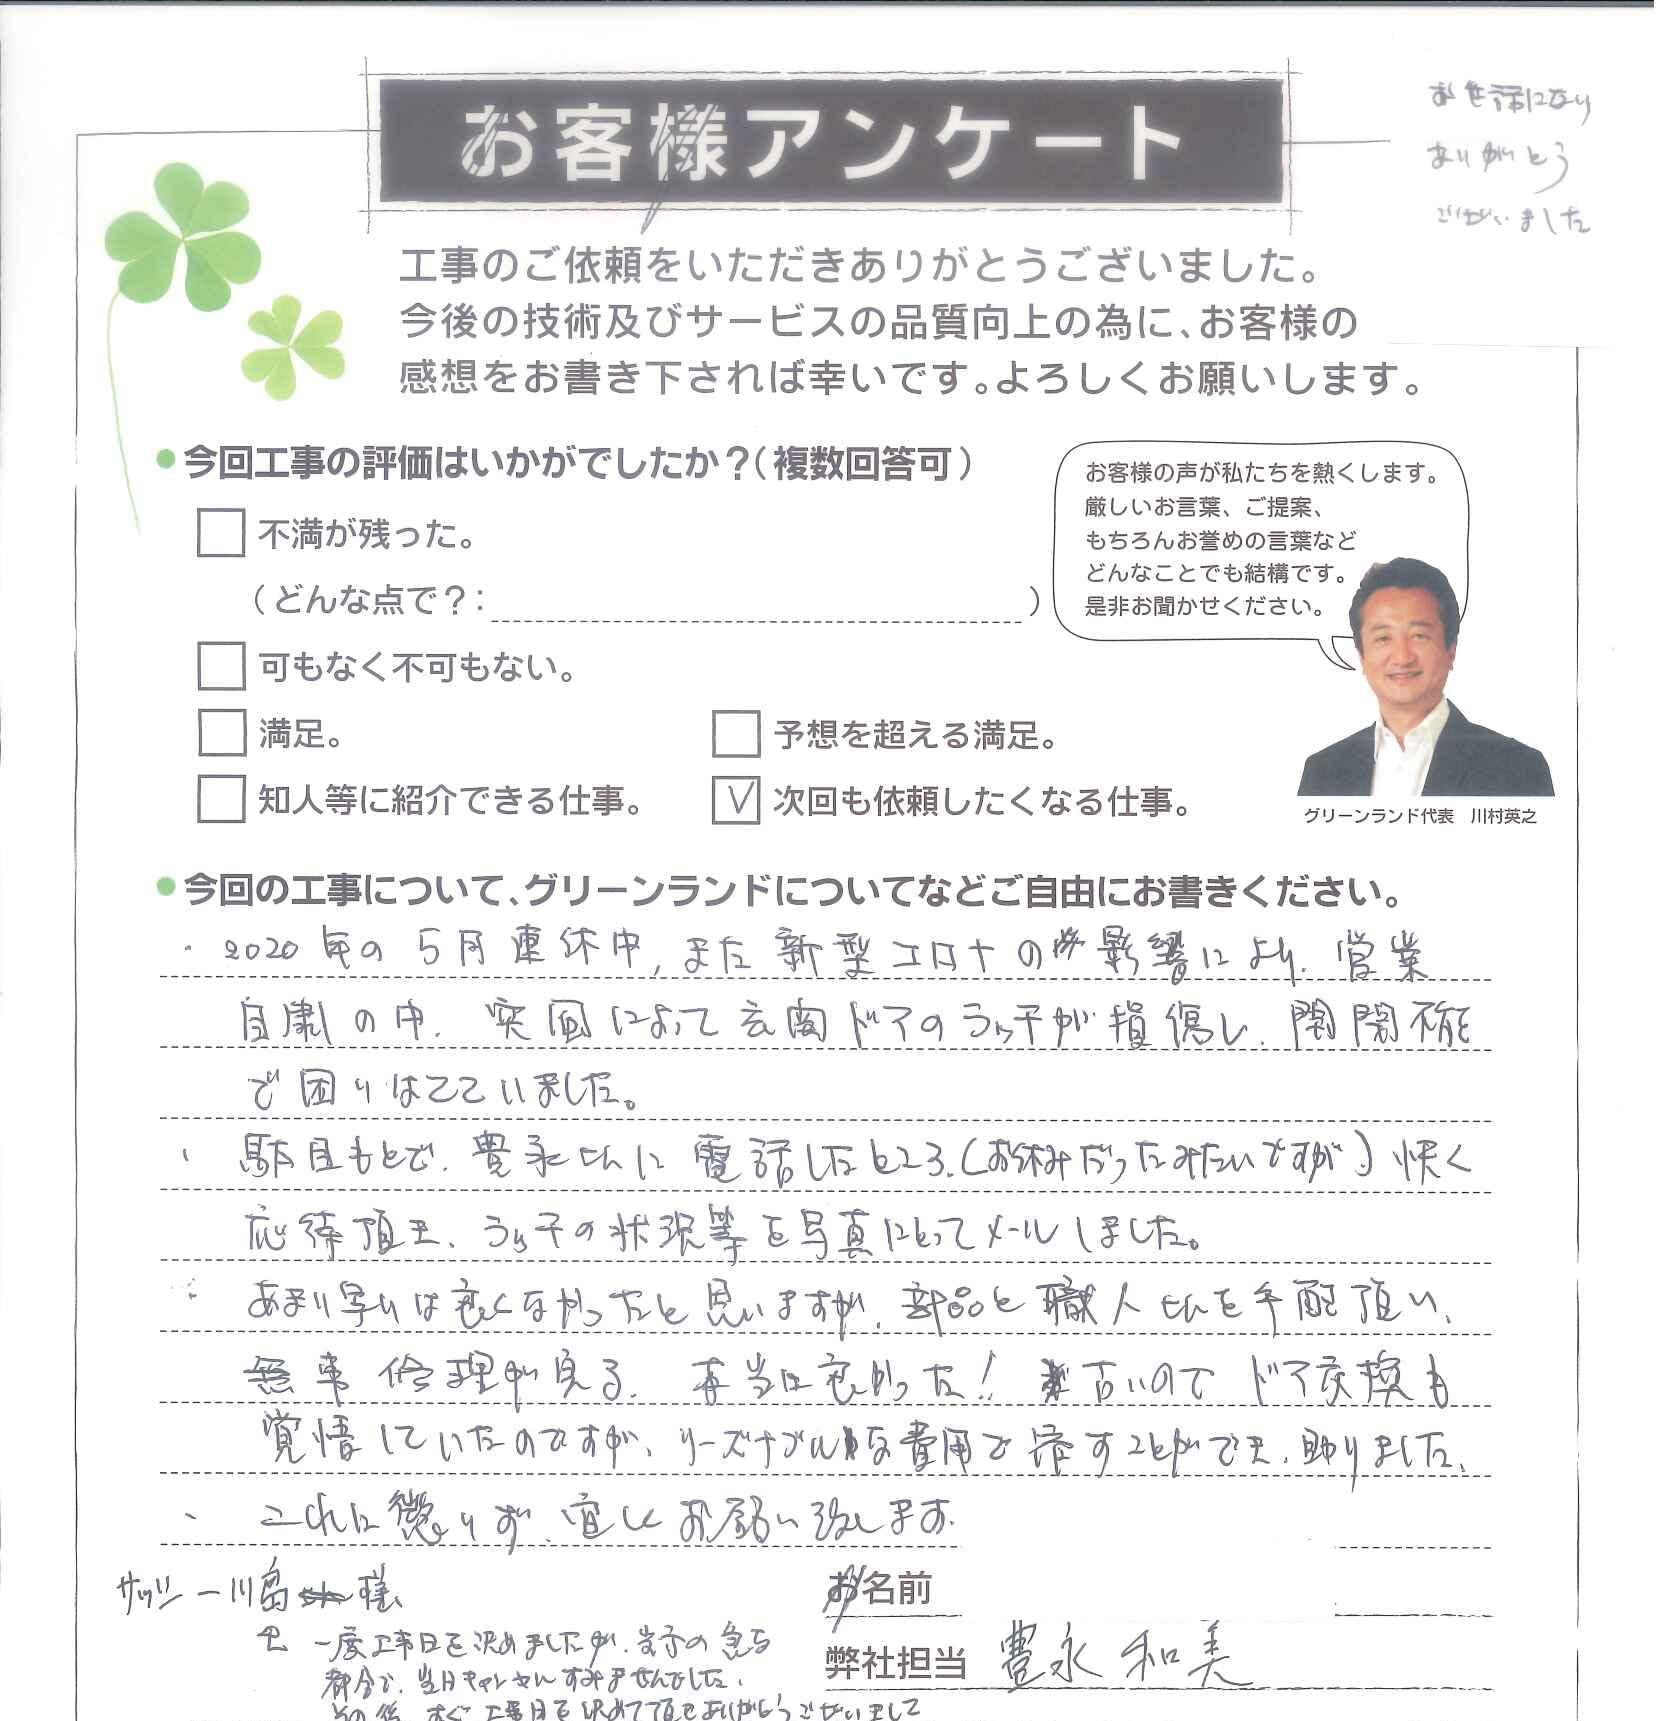 お客様アンケート
お世話になり
ありがとう
ございました
工事のご依頼をいただきありがとうございました。
今後の技術及びサービスの品質向上の為に、お客様の
感想をお書き下されば幸いです。よろしくお願いします。
今回工事の評価はいかがでしたか？（複数回答可）
不満が残った。
（どんな点で？：　）
可もなく不可もない。
満足。
予想を超える満足。
知人等に紹介できる仕事。
次回も依頼したくなる仕事。
お客様の声が私たちを熱くします。
厳しいお言葉、ご提案、
もちろんお誉めの言葉など
どんなことでも結構です。
是非お聞かせください。
グリーンランド代表　川村英之
今回の工事について、グリーンランドについてなどご自由にお書きください。
・2020年の5月連休中，また新型コロナの影響により、営業
自粛の中、突風によって玄関ドアのラッチが損傷し、開閉不能
で困りはてていました。
・駄目もとで、豊永さんに電話したところ、（お休みだったみたいですが）快く
応待頂き、ラッチの状況等を写真にとってメールしました。
・あまり早いは良くなかったと思いますが、部品と職人さんを手配頂い、
無事修理が出る、本当に良かった！古いのでドア交換も
覚悟していたのですが、リーズナブルな費用で済すことができ、助りました、
・これに懲りず、宜しくお願い致します。
サッシ 一川島様
お名前
弊社担当 豊永 和美
一度工事日を決めましたが、女子の急な
都合で、当日キャンセルすみませんでした、
その後、すぐ工事日を決めて頂きありがとうございまして